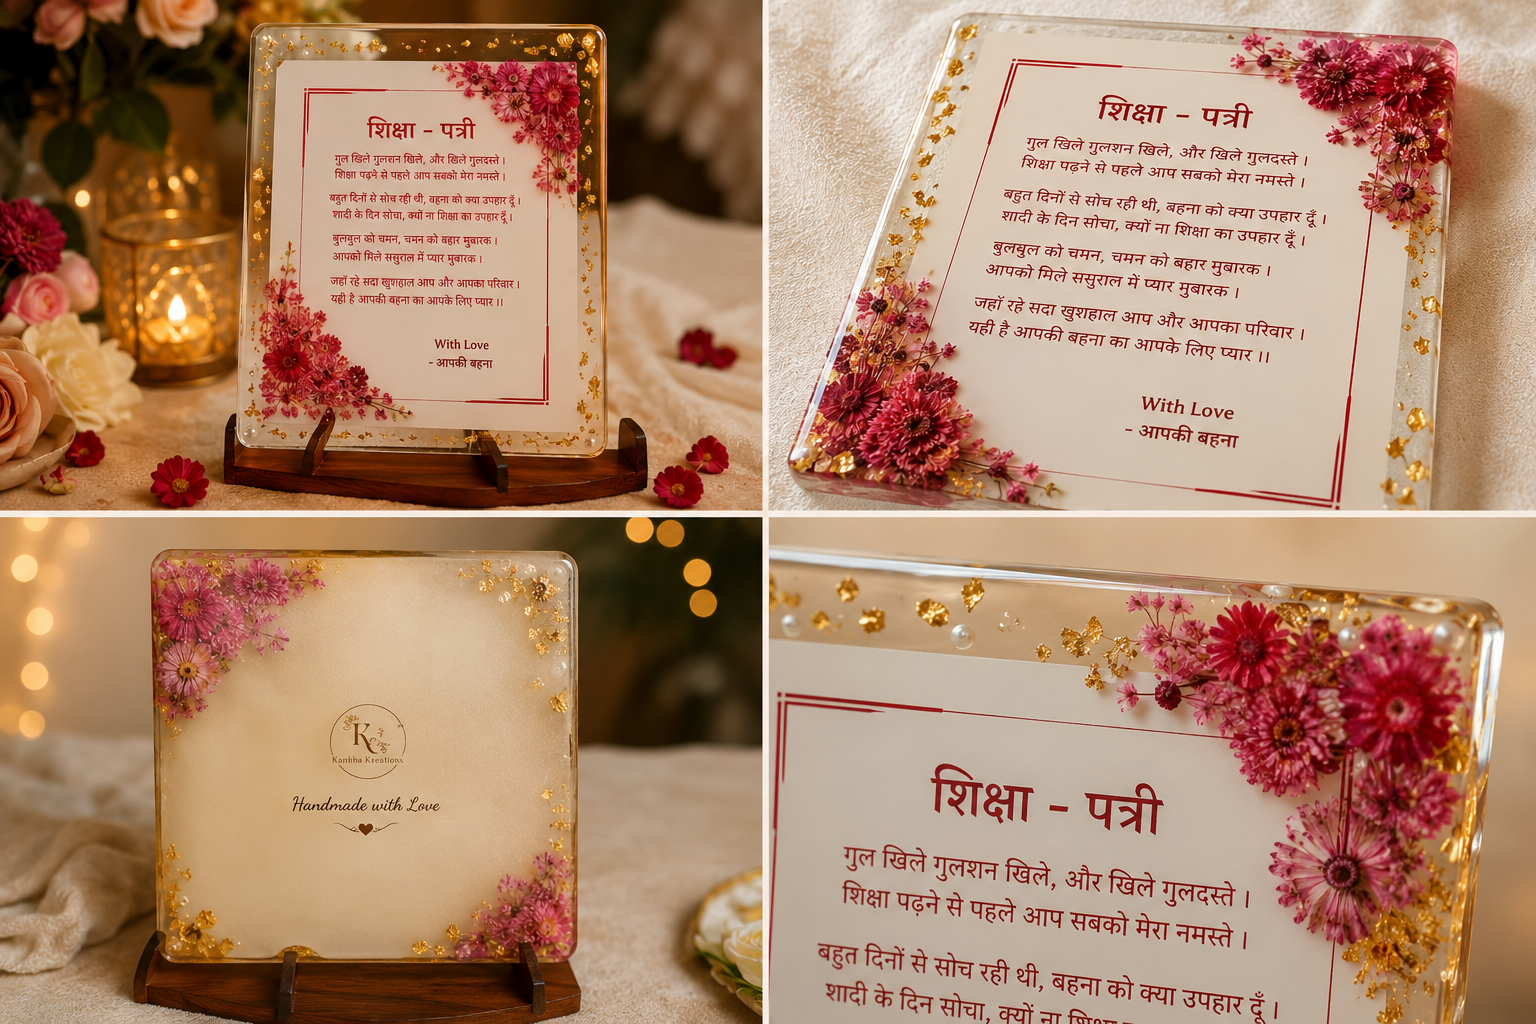 शिक्षा - पत्री
गुल खिले गुलशन खिले, और खिले गुलदस्ते ।
शिक्षा पढ़ने से पहले आप सबको मेरा नमस्ते ।
बहुत दिनों से सोच रही थी, बहना को क्या उपहार दूँ ।
शादी के दिन सोचा, क्यों ना शिक्षा का उपहार दूँ ।
बुलबुल को चमन, चमन को बहार मुबारक ।
आपको मिले ससुराल में प्यार मुबारक ।
जहाँ रहे सदा खुशहाल आप और आपका परिवार ।
यही है आपकी बहना का आपके लिए प्यार ।।
With Love
- आपकी बहना
शिक्षा - पत्री
गुल खिले गुलशन खिले, और खिले गुलदस्ते ।
शिक्षा पढ़ने से पहले आप सबको मेरा नमस्ते ।
बहुत दिनों से सोच रही थी, बहना को क्या उपहार दूँ ।
शादी के दिन सोचा, क्यों ना शिक्षा का उपहार दूँ ।
बुलबुल को चमन, चमन को बहार मुबारक ।
आपको मिले ससुराल में प्यार मुबारक ।
जहाँ रहे सदा खुशहाल आप और आपका परिवार ।
यही है आपकी बहना का आपके लिए प्यार ।।
With Love
- आपकी बहना
K
Kreations
Handmade with Love
शिक्षा - पत्री
गुल खिले गुलशन खिले, और खिले गुलदस्ते ।
शिक्षा पढ़ने से पहले आप सबको मेरा नमस्ते ।
बहुत दिनों से सोच रही थी, बहना को क्या उपहार दूँ ।
शादी के दिन सोचा, क्यों ना शिक्षा का उपहार दूँ ।